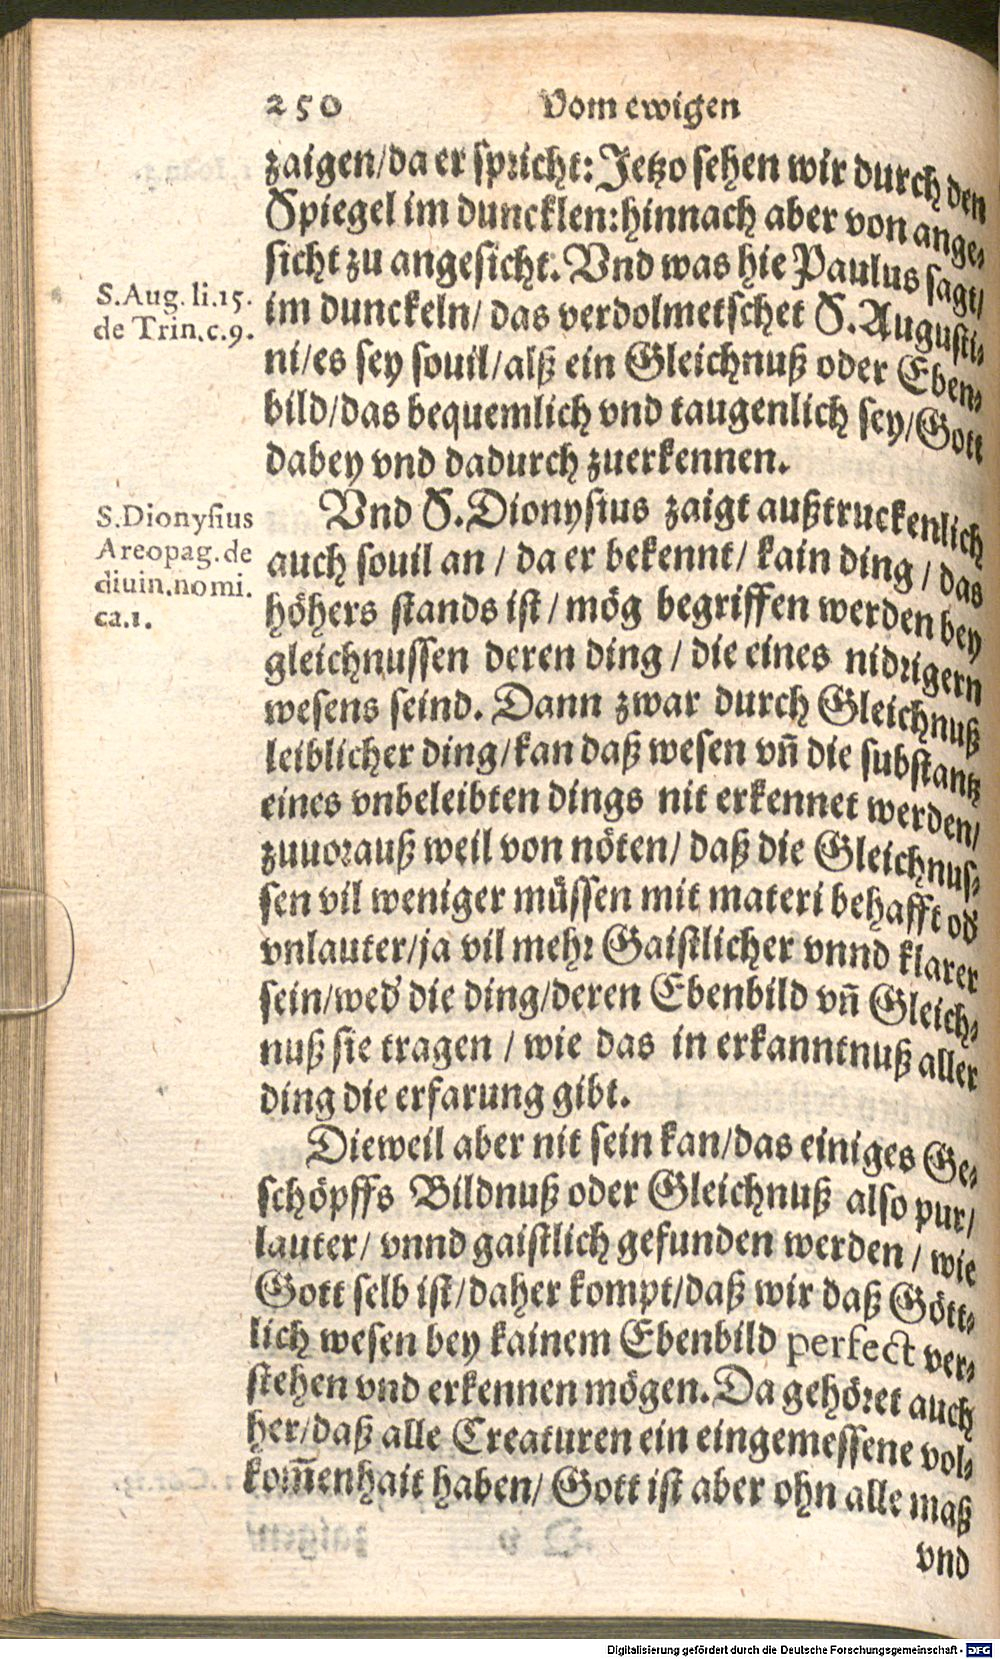 250 Vom ewigen
zaigen/da er spricht: Jetzo sehen wir durch den
Spiegel im duncklen: hinnach aber von ange-
sicht zu angesicht. Vnd was hie Paulus sagt/
S. Aug. li. 15.
de Trin. c. 9.
im dunckeln/ das verdolmetschet S. Augusti-
ni/es sey souil/alß ein Gleichnuß oder Eben-
bild/das bequemlich vnd taugenlich sey/Gott
dabey vnd dadurch zuerkennen.
S. Dionysius
Areopag. de
diuin. nomi.
ca. 1.
Vnd S. Dionysius zaigt außtruckenlich
auch souil an / da er bekennt/ kain ding / das
höhers stands ist / mög begriffen werden bey
gleichnussen deren ding / die eines nidrigern
wesens seind. Dann zwar durch Gleichnuß
leiblicher ding/kan daß wesen vñ die substantz
eines vnbeleibten dings nit erkennet werden/
zuuorauß weil von nöten/ daß die Gleichnus-
sen vil weniger müssen mit materi behafft od'
vnlauter/ja vil mehr Gaistlicher vnnd klarer
sein/wed' die ding/deren Ebenbild vñ Gleich-
nuß sie tragen / wie das in erkanntnuß aller
ding die erfarung gibt.
Dieweil aber nit sein kan/das einiges Ge-
schöpffs Bildnuß oder Gleichnuß also pur/
lauter/ vnnd gaistlich gefunden werden / wie
Gott selb ist/daher kompt/daß wir daß Gött-
lich wesen bey kainem Ebenbild perfect ver-
stehen vnd erkennen mögen. Da gehöret auch
her/daß alle Creaturen ein eingemessene vol-
kom̃enhait haben/ Gott ist aber ohn alle maß
vnd
Digitalisierung gefördert durch die Deutsche Forschungsgemeinschaft - DFG